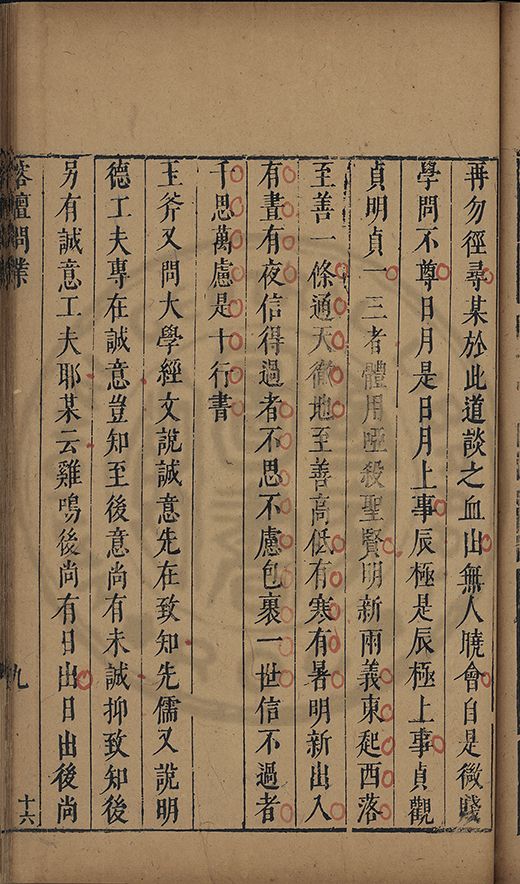 再勿徑尋某於此道談之血出無人曉會自是微賤
學問不尊日月是日月上事辰極是辰極上事貞觀
貞明貞一三者體用啞殺聖賢明新兩義東起西落
至善一條通天徹地至善高低有寒有暑明新出入
有晝有夜信得過者不思不慮包裹一世信不過者
千思萬慮是十行書
王斧又問大學經文說誠意先在致知先儒又說明
德工夫專在誠意豈知至後意尚有未誠抑致知後
另有誠意工夫耶某云雞鳴後尚有日出日出後尚
榕壇問業
九
十六